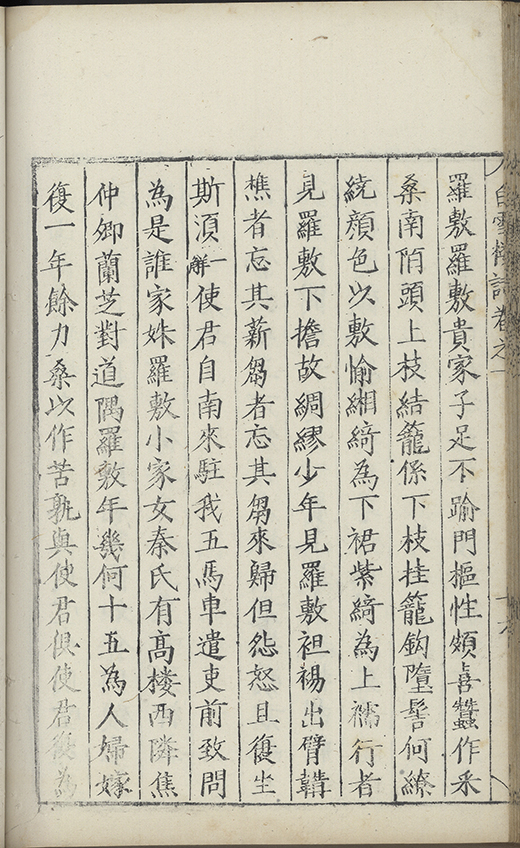 白雪樓詩卷之一
羅敷羅敷貴家子足不踰門樞性頗喜蠶作采
桑南陌頭上枝結籠係下枝挂籠鈎墮髻何繚
繞顔色以敷愉緗綺為下裙紫綺為上襦行者
見羅敷下擔故綢繆少年見羅敷袒裼出臂韝
樵者忘其薪芻者忘其芻來歸但怨怒且復坐
斯湏一觧使君自南來駐我五馬車遣吏前致問
為是誰家姝羅敷小家女秦氏有髙樓西隣焦
仲卿蘭芝對道隅羅敷年幾何十五為人婦嫁
復一年餘力桑以作苦孰與使君俱使君復為